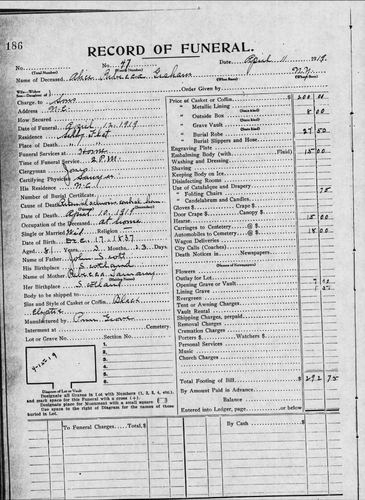 186
RECORD OF FUNERAL.
No. 77 Date April 11 1919
(Total Number) (Yearly Number)
Name of Deceased Alice Graham
Order Given by
Charge to Sons
Address N.C.
How Secured
Date of Funeral April 12, 1919
Residence
Place of Death " "
Funeral Services at Home
Time of Funeral Service 2 P.M.
Clergyman
Certifying Physician
His Residence N.C.
Number of Burial Certificate
Cause of Death
Date of Death April 10, 1919
Occupation of the Deceased at home
Single or Married Wid Religion
Date of Birth Dec. 17, 1837
Aged 81 Years 3 Months Days
Name of Father John Scott
His Birthplace Scotland
Name of Mother Rebecca
Her Birthplace Scotland
Body to be shipped to
Size and Style of Casket or Coffin Black
Manufactured by Penn Grove
Interment at Cemetery.
Lot or Grave No. Section No.
1.
2.
3.
4.
5.
6.
Diagram of Lot or Vault
Designate all Graves in Lot with Numbers (1, 2, 3, 4, etc.)
and mark space for this Funeral with a cross (+)
Designate place for Monument with a small square
Use space to the right of Diagram for the names of those
buried in Lot.
Price of Casket or Coffin 200 00
" Metallic Lining
" Outside Box 8 00
" Grave Vault
" Burial Robe 27 50
" Burial Slippers and Hose
Engraving Plate
Embalming Body (with Fluid) 15 00
Washing and Dressing
Shaving
Keeping Body on Ice
Disinfecting Rooms
Use of Catafalque and Drapery
" Folding Chairs 75
" Candelabrum and Candles
Gloves $ Crape $
Door Crape $ Canopy $
Hearse 15 00
Carriages to Cemetery @ $
Automobiles to Cemetery @ $ 18 00
Wagon Deliveries
City Calls (Coaches)
Death Notices in Newspapers
(Names of Newspapers)
Flowers
Outlay for Lot
Opening Grave or Vault
Lining Grave
Evergreen
Tent or Awning Charges
Vault Rental
Shipping Charges, prepaid
Removal Charges
Cremation Charges
Porters $ Watchers $
Personal Services
Music
Church Charges
Total Footing of Bill $ 292 75
By Amount Paid in Advance
Balance
Entered into Ledger, page or below
To Funeral Charges, Total $
By Cash $